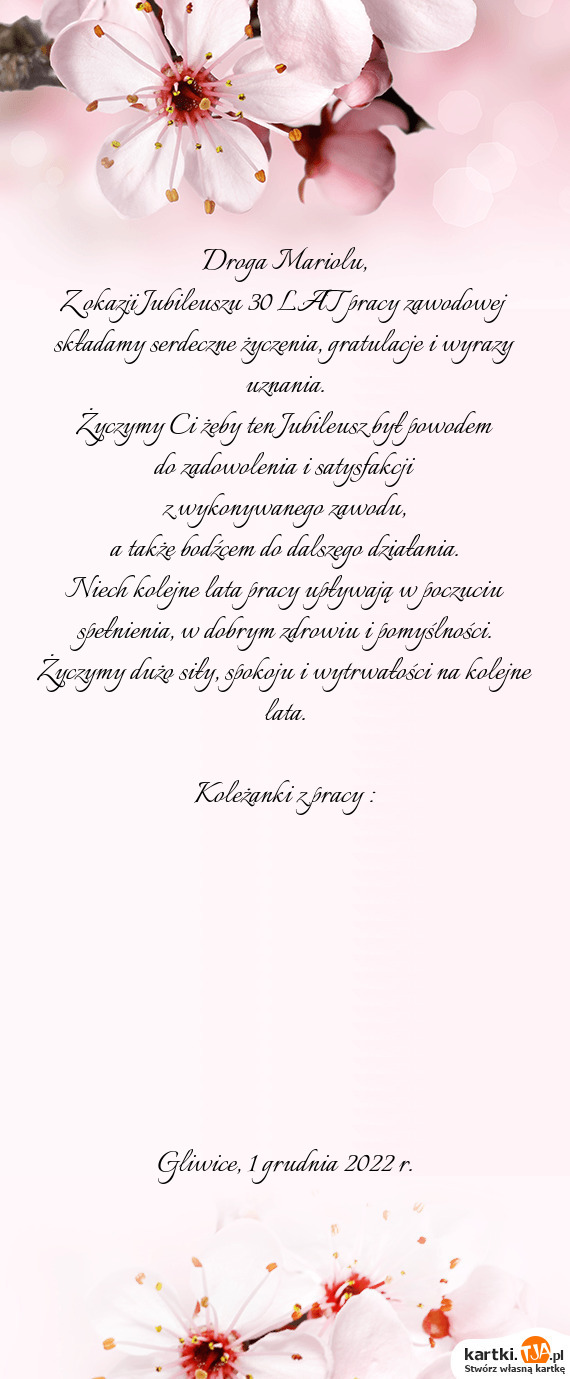 Droga Mariolu,
Z okazji Jubileuszu 30 LAT pracy zawodowej
składamy serdeczne życzenia, gratulacje i wyrazy
uznania.
Życzymy Ci żeby ten Jubileusz był powodem
do zadowolenia i satysfakcji
z wykonywanego zawodu,
a także bodźcem do dalszego działania.
Niech kolejne lata pracy upływają w poczuciu
spełnienia, w dobrym zdrowiu i pomyślności.
Życzymy dużo siły, spokoju i wytrwałości na kolejne
lata.
Koleżanki z pracy :
Gliwice, 1 grudnia 2022 r.
kartki.TJA.pl
Stwórz własną kartkę